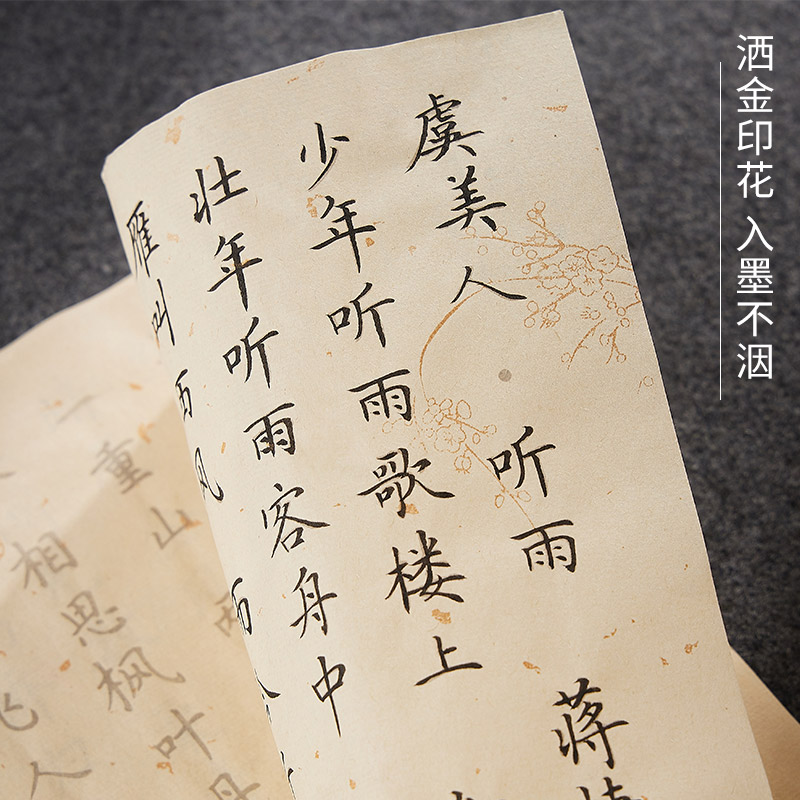 洒金印花 入墨不洇
虞美人·听雨
蒋
少年听雨歌楼上
壮年听雨客舟中
雁叫西风
一重山
相思枫叶丹
飞人